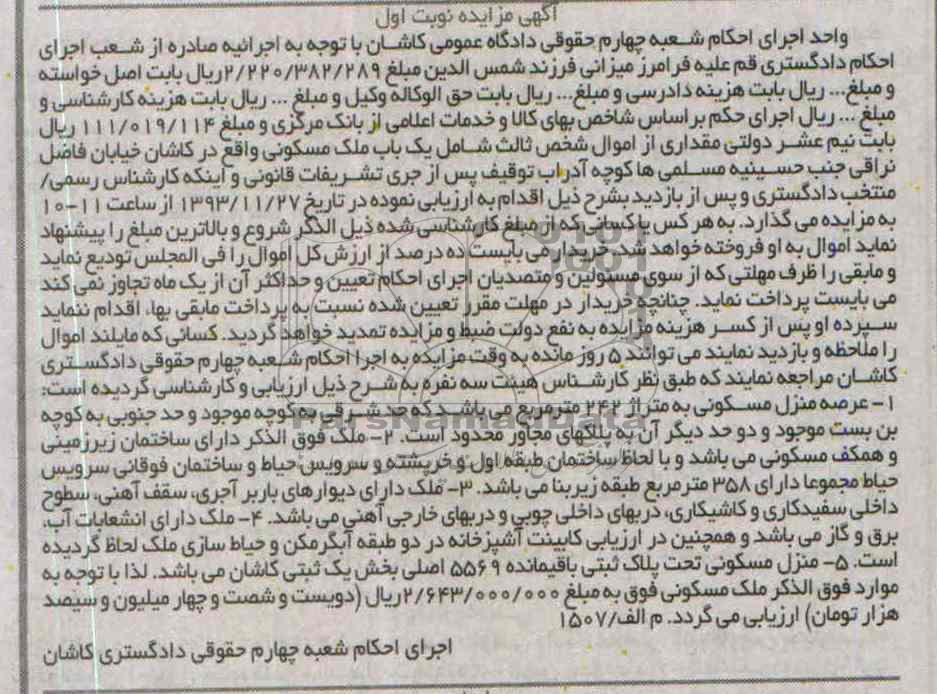 آگهی مزایده نوبت اول
واحد اجرای احکام شعبه چهارم حقوقی دادگاه عمومی کاشان با توجه به اجرائیه صادره از شعب اجرای
احکام دادگستری قم علیه فرامرز میزانی فرزند شمس الدین مبلغ ۲/۲۲۰/۳۸۲/۲۸۹ریال بابت اصل خواسته
و مبلغ... ریال بابت هزینه دادرسی و مبلغ... ریال بابت حق الوکاله وکیل و مبلغ ... ریال بابت هزینه کارشناسی و
مبلغ ... ریال اجرای حکم بر اساس شاخص بهای کالا و خدمات اعلامی از بانک مرکزی و مبلغ ۱۱۱/۰۱۹/۱۱۴ ریال
بابت نیم عشر دولتی مقداری از اموال شخص ثالث شامل یک باب ملک مسکونی واقع در کاشان خیابان فاضل
نراقی جنب حسینیه مسلمی ها کوچه آدراب توقیف پس از جری تشریفات قانونی و اینکه کارشناس رسمی/
منتخب دادگستری و پس از بازدید بشرح ذیل اقدام به ارزیابی نموده در تاریخ ۱۳۹۳/۱۱/۲۷ از ساعت ۱۱-۱۰
به مزایده می گذارد. به هر کس یا کسانی که از مبلغ کارشناسی شده ذیل الذکر شروع و بالاترین مبلغ را پیشنهاد
نماید اموال به او فروخته خواهد شد. خریدار می بایست ده درصد از ارزش کل اموال را فی المجلس تودیع نماید
و مابقی را ظرف مهلتی که از سوی مسئولین و متصدیان اجرای احکام تعیین و حداکثر آن از یک ماه تجاوز نمی کند
می بایست پرداخت نماید. چنانچه خریدار در مهلت مقرر تعیین شده نسبت به پرداخت مابقی بها، اقدام ننماید
سپرده او پس از کسر هزینه مزایده به نفع دولت ضبط و مزایده تمدید خواهد گردید. کسانی که مایلند اموال
را ملاحظه و بازدید نمایند می توانند ۵ روز مانده به وقت مزایده به اجرا احکام شعبه چهارم حقوقی دادگستری
کاشان مراجعه نمایند که طبق نظر کارشناس هیئت سه نفره به شرح ذیل ارزیابی و کارشناسی گردیده است:
۱- عرصه منزل مسکونی به متراژ ۲۴۲ مترمربع می باشد که حد شرقی به کوچه موجود و حد جنوبی به کوچه
بن بست موجود و دو حد دیگر آن به پلاکهای مجاور محدود است. ۲- ملک فوق الذکر دارای ساختمان زیرزمینی
و همکف مسکونی می باشد و با لحاظ ساختمان طبقه اول و خرپشته و سرویس حیاط و ساختمان فوقانی سرویس
حیاط مجموعا دارای ۳۵۸ مترمربع طبقه زیربنا می باشد. ۳- ملک دارای دیوارهای باربر آجری، سقف آهنی، سطوح
داخلی سفیدکاری و کاشیکاری، دربهای داخلی چوبی و دربهای خارجی آهنی می باشد. ۴- ملک دارای انشعابات آب،
برق و گاز می باشد و همچنین در ارزیابی کابینت آشپزخانه در دو طبقه آبگرمکن و حیاط سازی ملک لحاظ گردیده
است. ۵- منزل مسکونی تحت پلاک ثبتی باقیمانده ۵۵۶۹ اصلی بخش یک ثبتی کاشان می باشد. لذا با توجه به
موارد فوق الذکر ملک مسکونی فوق به مبلغ ۲/۶۴۳/۰۰۰/۰۰۰ریال (دویست و شصت و چهار میلیون و سیصد
هزار تومان) ارزیابی می گردد. م الف/۱۵۰۷
اجرای احکام شعبه چهارم حقوقی دادگستری کاشان
ParsNamadData